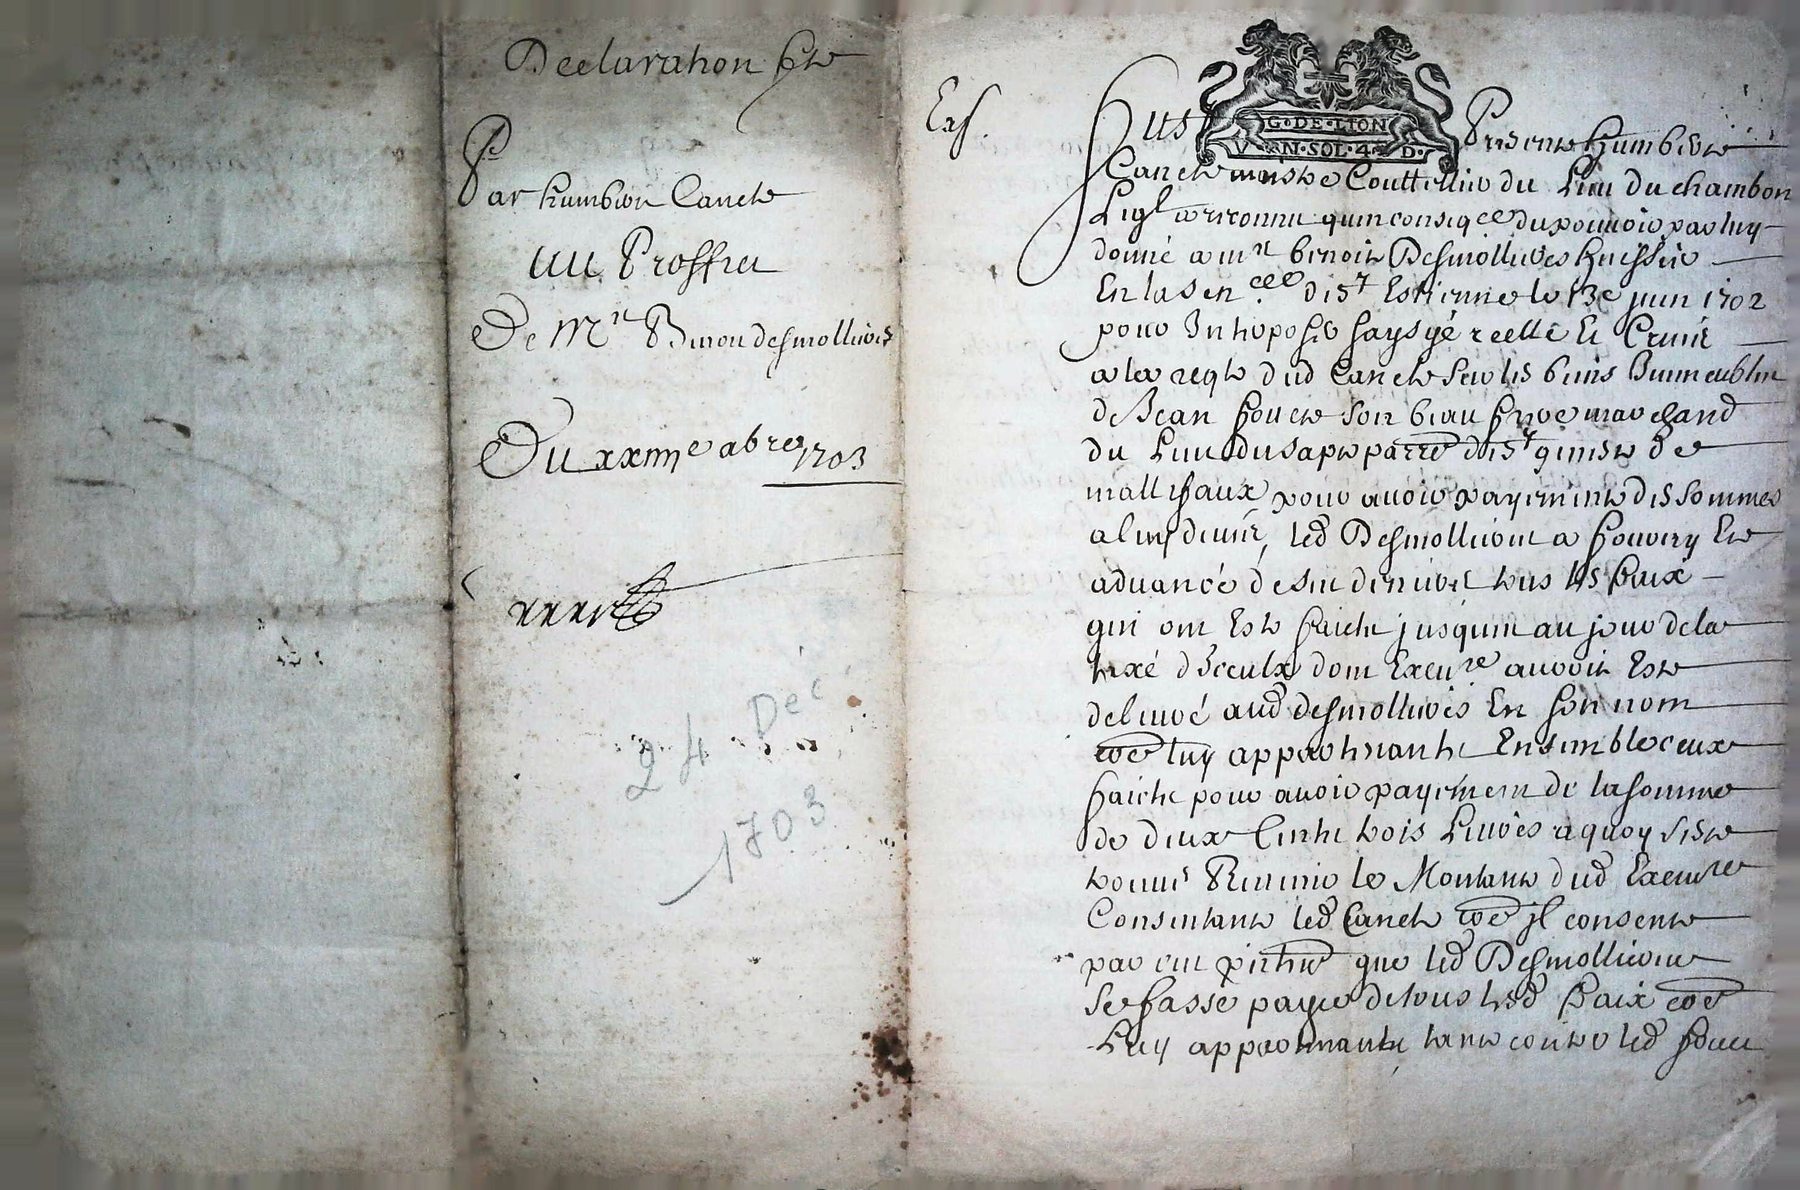 Declaration fte
Par humbert Canet
Au Proffict
De Mre Benoit desmolliere
Du xxiiiie xbre 1703
24 Dec
1703
Exs.
Fust Present humbert
G·DE·LION
VN·SOL·4·D·
Canet maistre Couttellier du Lieu du chambon
Leql a reconnu quen conseqce du pouvoir par luy
donné a mre benoit Desmollieres huissier
En la senecee de st Estienne le 13e juin 1702
pour Interposer saysye reelle Et Criée
a la reqte dud Canet sur les biens Immeubles
de Jean fouet son beau frere marchand
du Lieu du sapt parre de st genist de
mallifaux pour avoir payement des sommes
a luy deues, led Desmolliere a fourny Et
advancé de ses deniers tous les fraix
qui ont Esté faicts jusquau jour de la
taxe d'Iceulx dont Exeure auroit Esté
delivré aud desmollieres En son nom
coe luy appartenants Ensemble ceux
faicts pour avoir payement de la somme
de deux Cents trois Livres a quoy s'est
trouvé Revenir le Montant dud Exeure
Consentant led Canet coe jl consent
par ces pntes que led Desmolliere
se fasse payer de tous lesd fraix coe
Luy appartenants tant contre led fouet